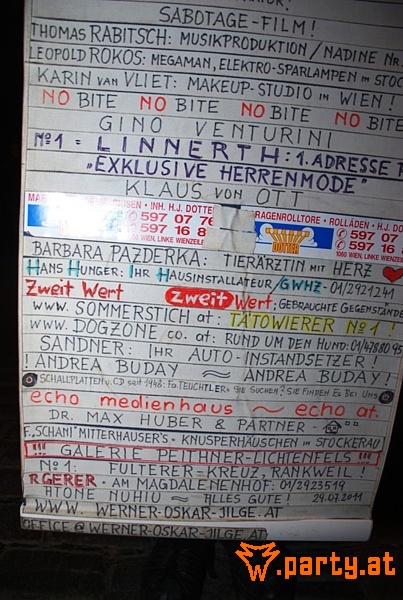 SABOTAGE-FILM!
THOMAS RABITSCH: MUSIKPRODUKTION / NADINE
LEOPOLD ROKOS: MEGAMAN, ELEKTRO-SPARLAMPEN IN
KARIN VAN VLIET: MAKEUP-STUDIO IN WIEN!
NO BITE NO BITE NO BITE NO BITE
GINO VENTURINI
Nº1 = LINNERTH: 1. ADRESSE
"EXKLUSIVE HERRENMODE"
KLAUS VON OTT
INH. H.J. DOTTER
597 07 76
597 16 8
1060 WIEN, LINKE WIENZEILE
RAGENROLLTORE · ROLLÄDEN · H.J.
DOTTER
597 07
597 16
1060 WIEN, LINKE WIENZEILE
BARBARA PAZDERKA: TIERÄRZTIN MIT HERZ
HANS HUNGER: IHR HAUSINSTALLATEUR / GWHZ - 01/2921241
Zweit Wert Zweit Wert: GEBRAUCHTE GEGENSTÄNDE
WWW. SOMMERSTICH at: TÄTOWIERER Nº1!
WWW. DOGZONE co. at: RUND UM DEN HUND: 01/4788095
SANDNER: IHR AUTO-INSTANDSETZER!
! ANDREA BUDAY ~ ANDREA BUDAY!
SCHALLPLATTEN u. CD seit 1948: Fa. TEUCHTLER · SIE SUCHEN? SIE FINDEN ES BEI UNS
echo medienhaus ~ echo at.
DR. MAX HUBER & PARTNER -
F. "SCHANI" MITTERHAUSER'S - KNUSPERHÄUSCHEN IN STOCKERAU
!!! GALERIE PEITHNER-LICHTENFELS !!!
Nº1: FULTERER-KREUZ, RANKWEIL!
RGERER - AM MAGDALENENHOF: 01/2923519
ATONE NUHIU ~ ALLES GUTE! 29.07.2011
WWW. WERNER-OSKAR-JILGE.AT
OFFICE @ WERNER-OSKAR-JILGE.AT
w.party.at